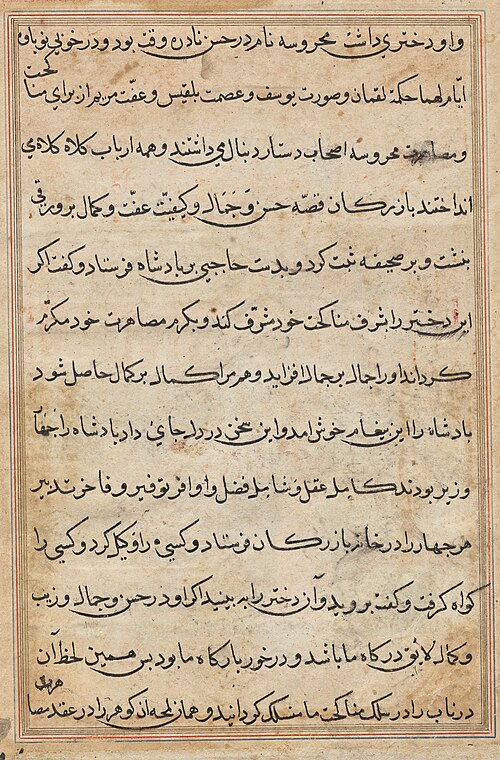 و او دختری داشت محروسه نام در حسن نادره وقت بود و در خوبی نوباوه
ایّام لهما حکمة لقمان و صورت یوسف و عصمت بلقیس و عفّت مریم از برای مناکحت
و مصاهرت محروسه اصحاب دستار دنبال می داشتند و همه ارباب کلاه کلاه می
انداختند بازرکان قصّه حسن و جمال و کیفیّت عفّت و کمال برورقی
بنشت و بر صحیفه ثبت کرد و بدست حاجبی بر بادشاه فرستاد و کفت اکر
این دختر را بشرف مناکحت خود مشرّف کند و بکرم مصاهرت خود مکرّم
کرداند او را جمال بر جمال افزاید و هم مرا کمال بر کمال حاصل شود
بادشاه را این بیغام خوش آمد و این سخن در دل جای داد بادشاه را جهار
وزیر بودند کامل عقل و شامل فضل وافر توفیر و فاخر تدبیر
هر جهار را در خانه بازرکان فرستاد و کسی را وکیل کرد و کسی را
کواه کرفت و کفت بروید و آن دختر را ببینید اکر او در حسن و جمال و زیب
و کمال لایق درکاه ما باشد و در خور بارکاه ما بود بس همین لحظ آن
در ناب را در سلک مناکحت ما منسلک کردانید و همان لمحه ان کوهر را در عقد مصاهرت